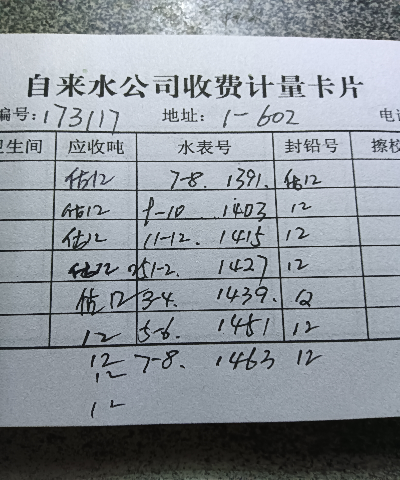 自来水公司收费计量卡片
编号: 173117 地址: 1-602 电
卫生间 应收吨 水表号 封铅号 擦校
估12 7-8. 1391. 估12
估12 9-10 1403 12
估12 11-12. 1415 12
估12 251-2. 1427 12
估12 3-4. 1439. 12
12 5-6. 1451 12
12 7-8. 1463 12
12
12